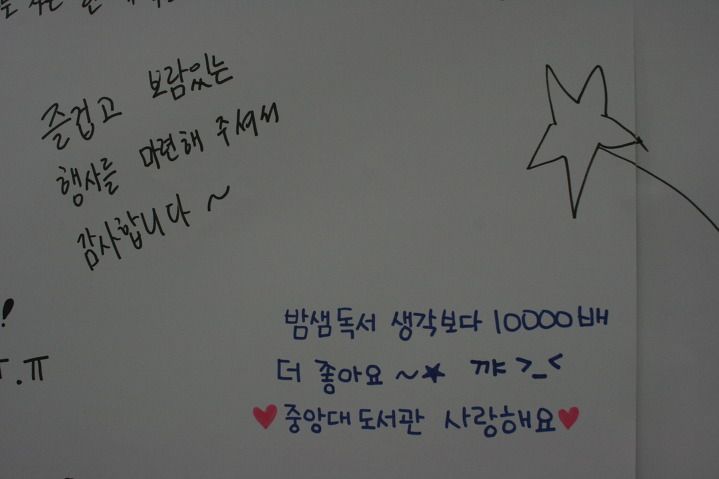 즐겁고 보람있는
행사를 마련해 주셔서
감사합니다 ~
!
ㅠ.ㅠ
밤샘독서 생각보다 10000배
더 좋아요 ~★ 꺄 >_<
♥중앙대도서관 사랑해요♥